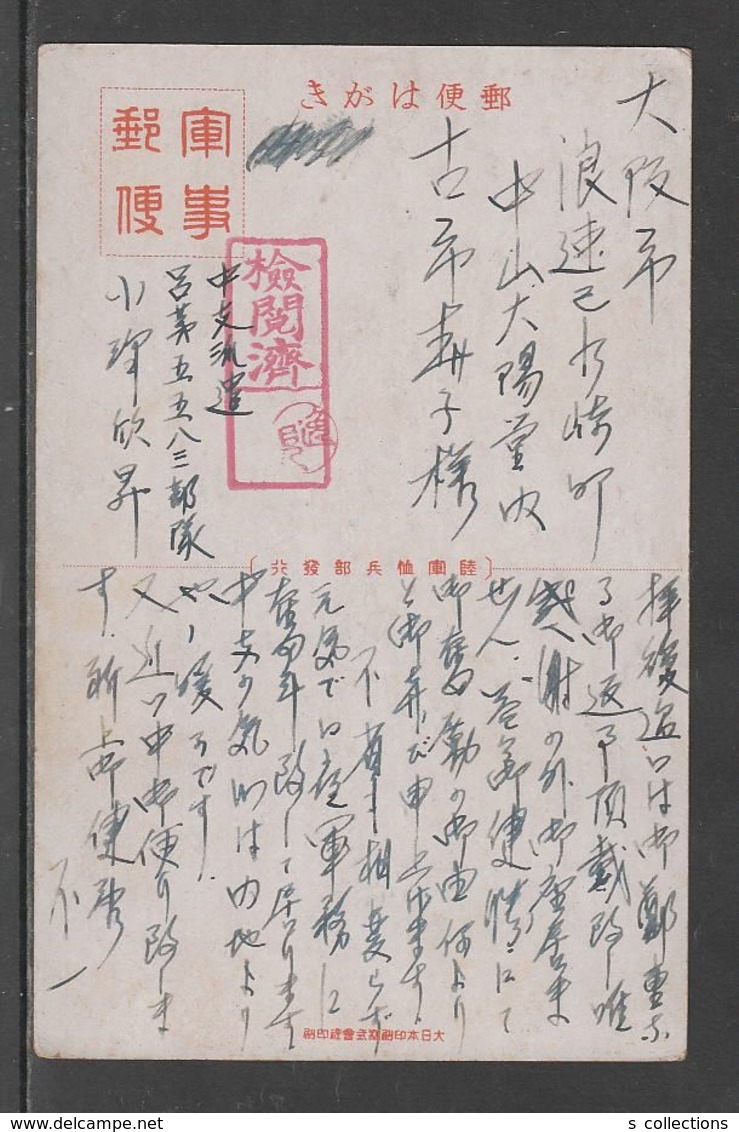 郵便はがき
軍事
郵便
檢閱濟
大阪市
浪速区水崎町
中山太陽堂内
古市寿子様
中支派遣
呂第五五八三部隊
小澤欣昇
陸軍恤兵部發行
拝復 過日は御鄭重な
る御返事頂戴致し唯
感謝の外御座居ま
せん。益々御健勝にて
御奮励の御由何より
と御喜び申上げます。
不肖も相変らず
元気で日夜軍務に
奮闘致して居ります
中支の気候は内地より
やゝ暖いです。
又近い中御便り致しま
す。 祈 御健勝
不一
大日本印刷株式會社印刷
s collections